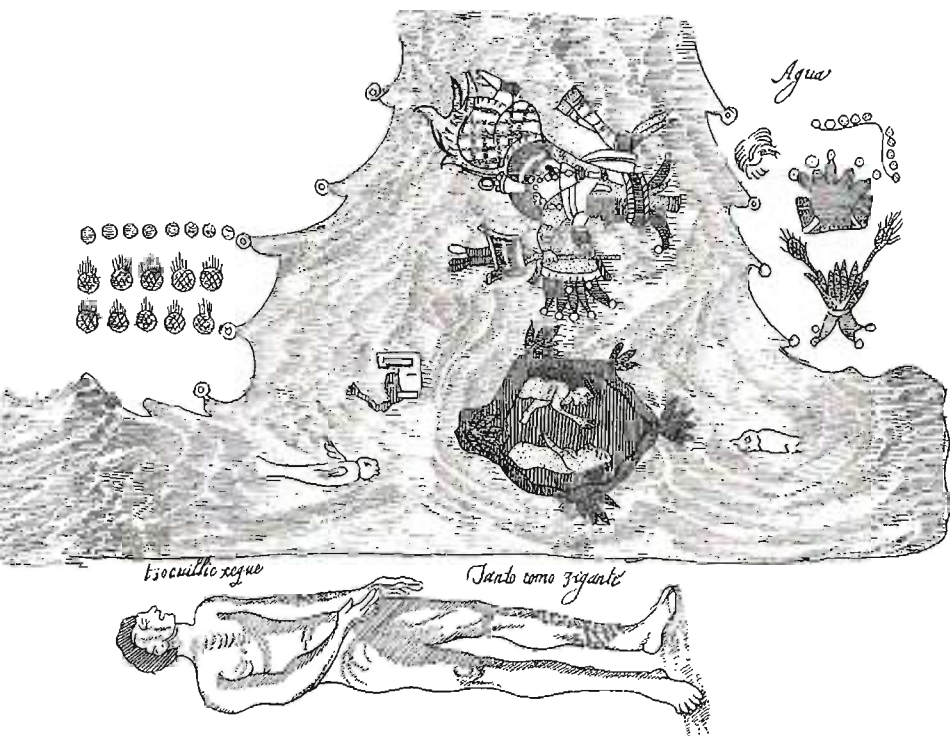 Agua
tzocuillic xeque
Tanto como zigante